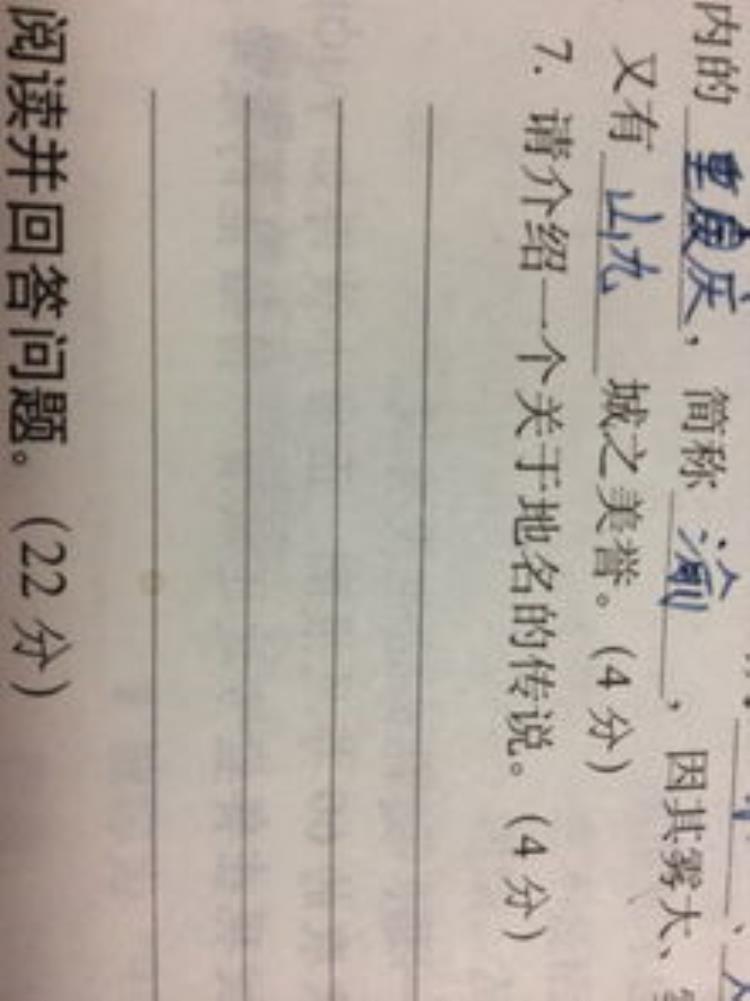 内的 重庆, 简称 渝, 因其雾大、
又有 山 城之美誉。(4分)
7. 请介绍一个关于地名的传说。(4分)
阅读并回答问题。(22分)